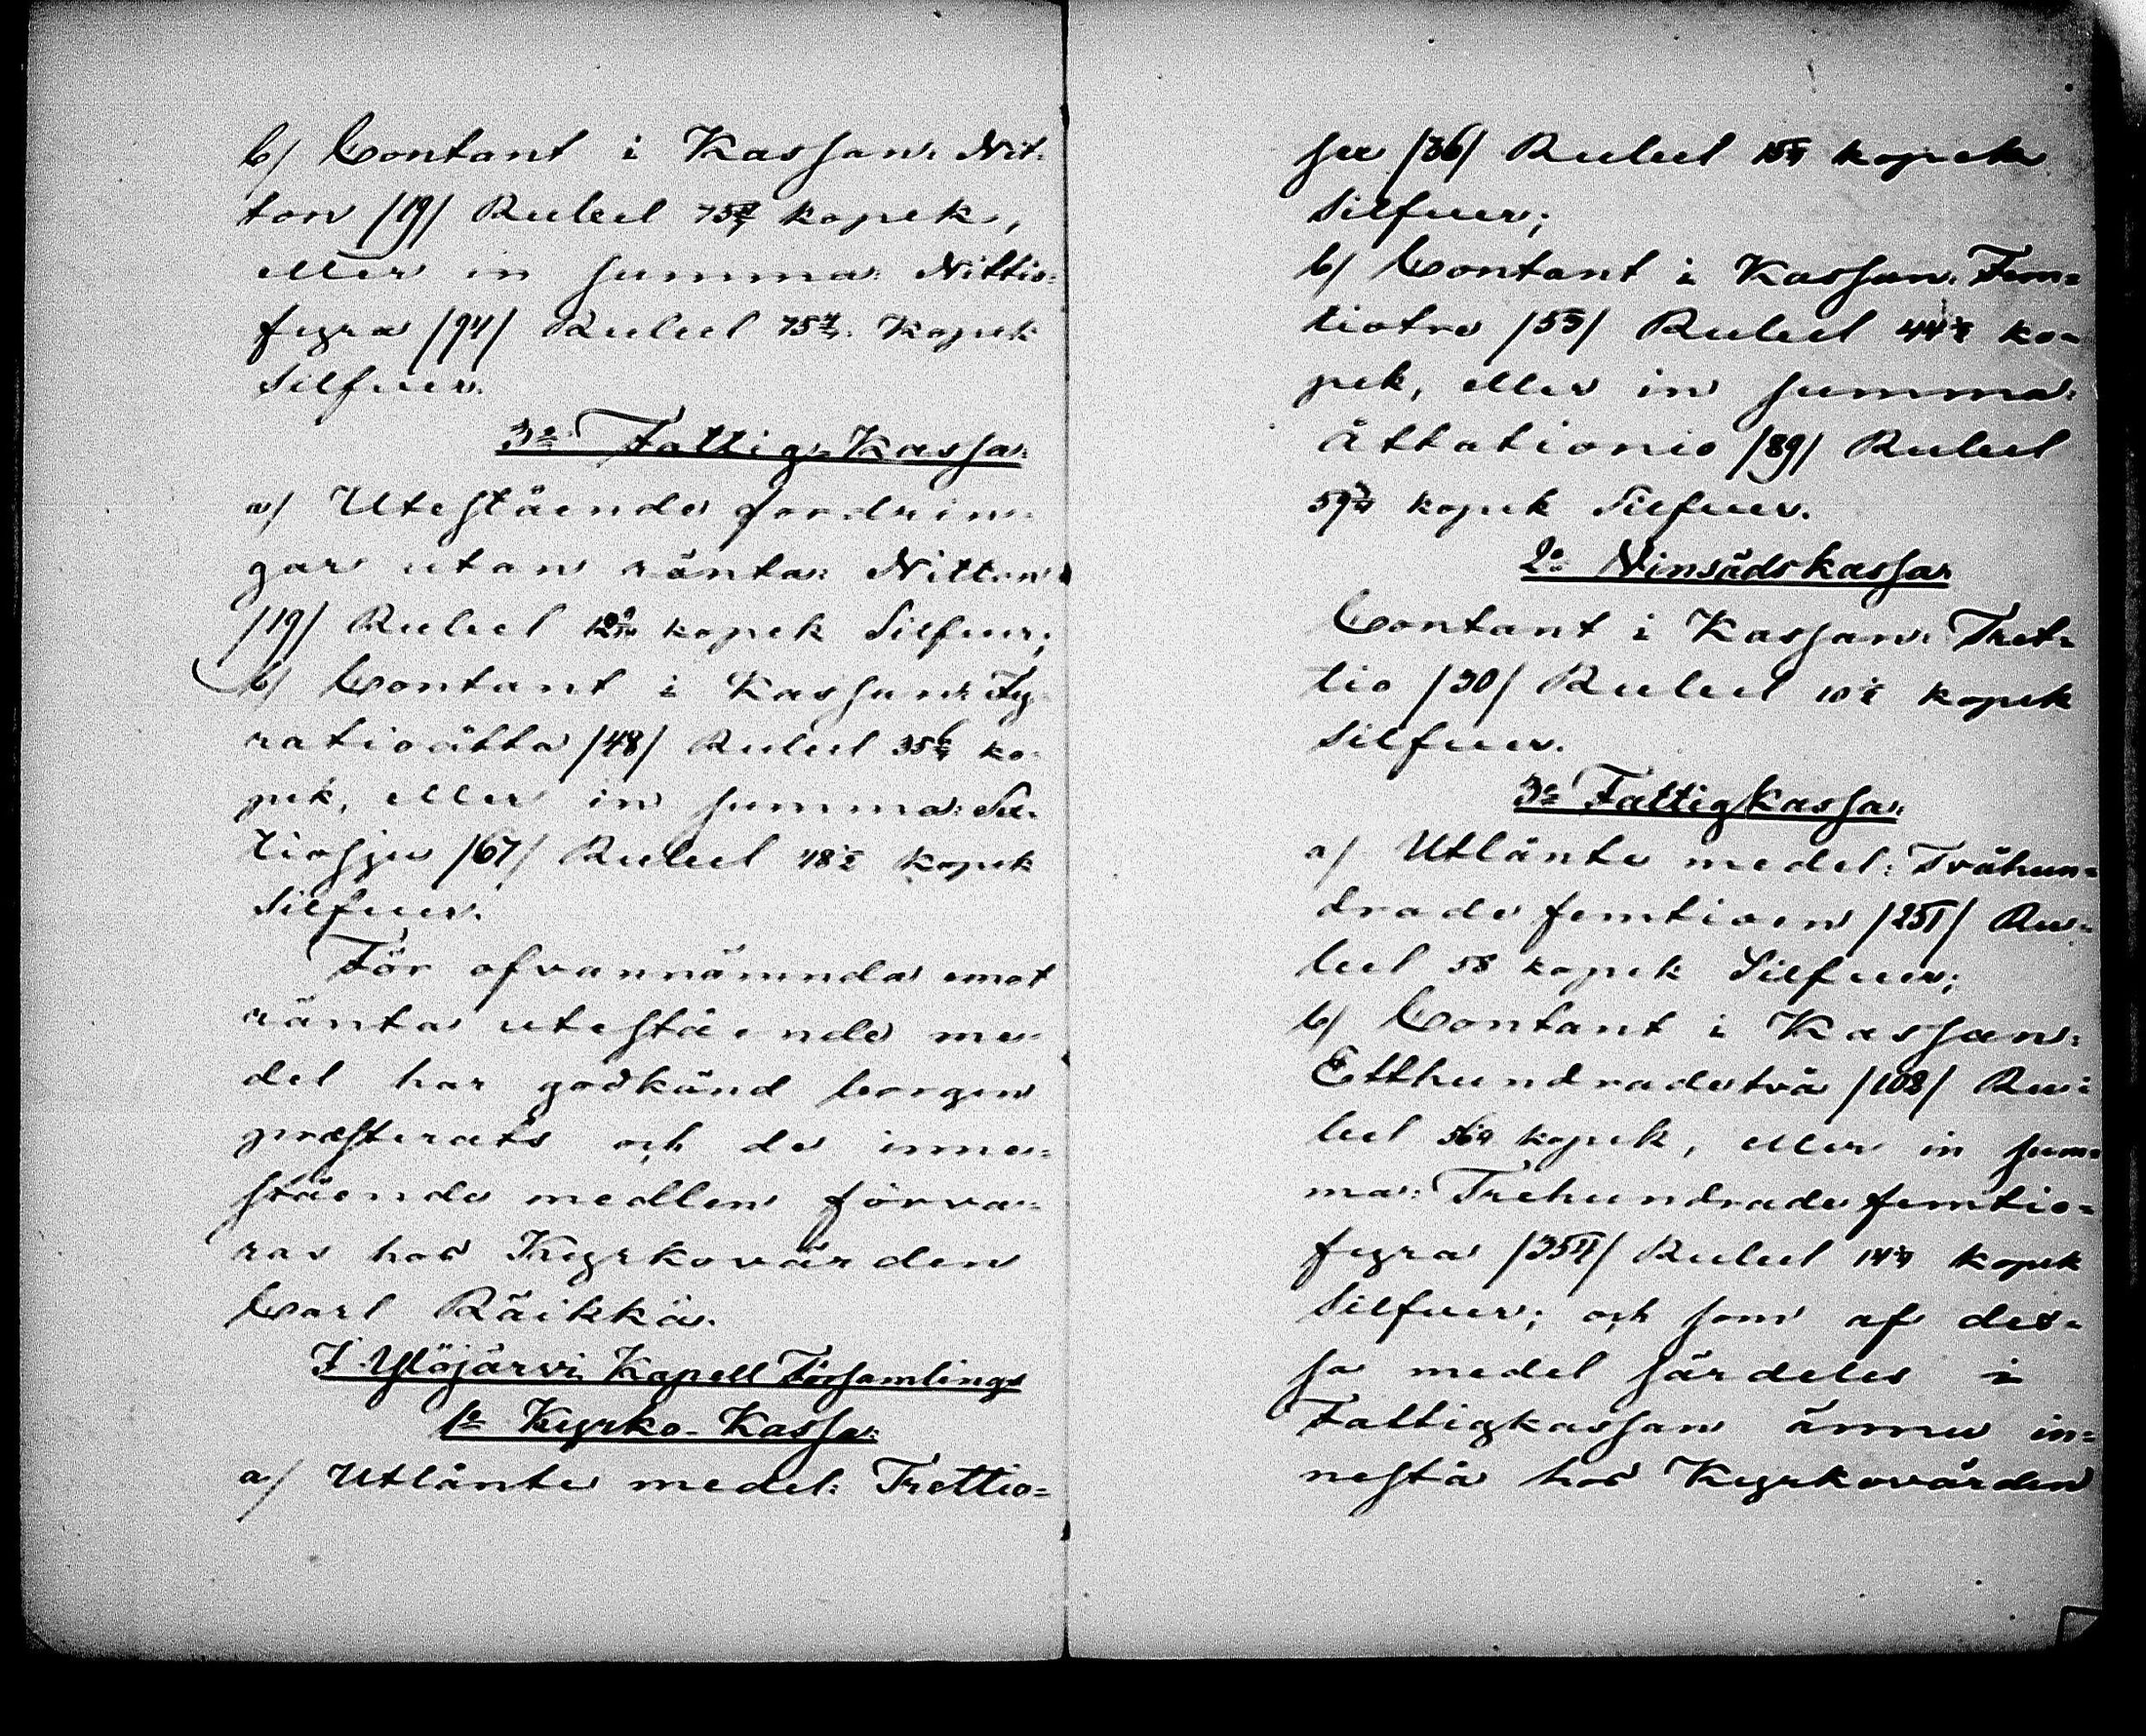 b/ Contant i Kassan: Nit-
ton /19/ Rubel 75 4/7 kopek,
eller in summa: Nittio-
fyra /94/ Rubel 75 4/7 kopek
Silfver.
3:o Fattig-Kassa:
a/ Utestående fordrin-
gar utan ränta: Nitton
/19/ Rubel kopek Silfver;
b/ Contant i Kassan: Fy-
ratioåtta /48/ Rubel 35 6/7 ko-
pek, eller in summa: Sex-
tiosju /67/ Rubel 48 kopek
Silfver.
För ofvannämnda emot
ränta utestående me-
del har godkänd borgen
præsterats och de inne-
stående medlen förva-
ras hos Kyrkovärden
Carl Räikkä.
I Ylöjärvi Kapell Församlings
1:o Kyrko-Kassa:
a/ Utlånte medel: Trettio-
sex /36/ Rubel kopek
Silfver;
b/ Contant i Kassan: Fem-
tiotre /53/ Rubel ko-
pek, eller in summa:
åttationio /89/ Rubel
kopek Silfver.
2:o Vinsädskassa:
Contant i Kassan: Tret-
tio /30/ Rubel kopek
Silfver.
3:o Fattigkassa:
a/ Utlånte medel: Tvåhun-
drade femtioen /251/ Ru-
bel 58 kopek Silfver;
b/ Contant i Kassan:
Etthundradetvå /102/ Ru-
bel kopek, eller in sum-
ma: Trehundrade femtio-
fyra /354/ Rubel kopek
Silfver; och som af des-
sa medel särdeles i
Fattigkassan ännu in-
nestå hos Kyrkovärden